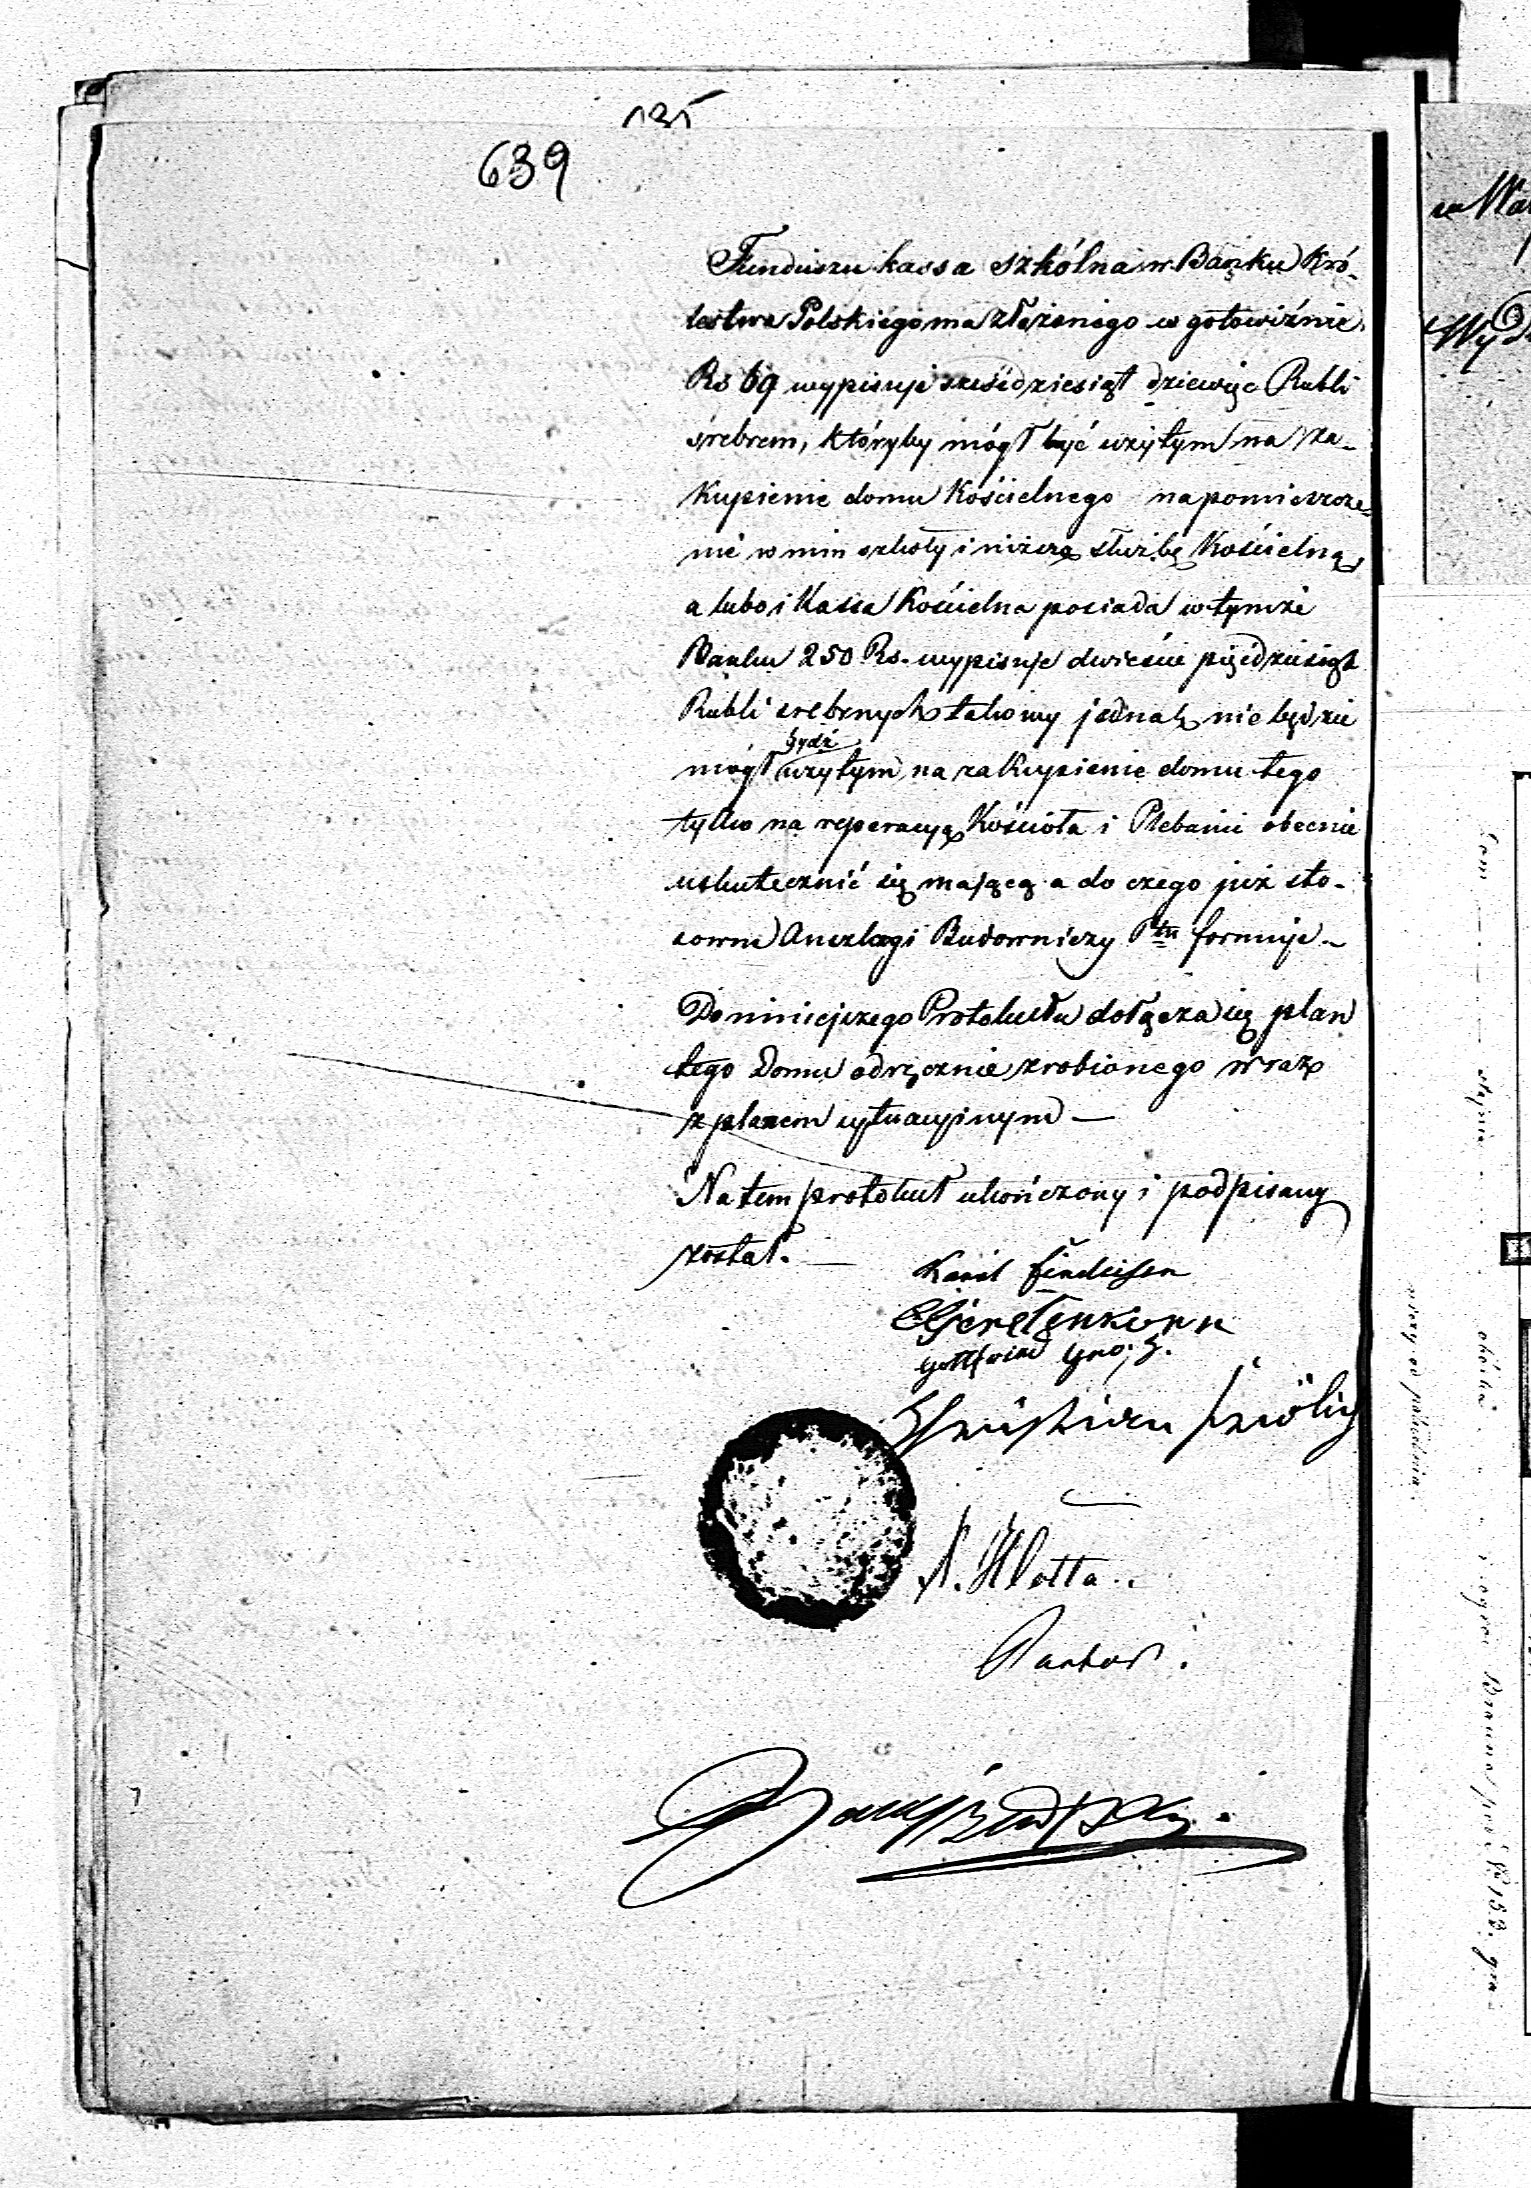 135
639
Funduszu kassa szkólna w Banku Kró-
lestwa Polskiego ma złożonego w gotowiźnie
Rs 69 wypisuje sześćdziesiąt dziewięc Rubli
śrebrem, któryby mógł być użytym na za-
kupienie domu Kościelnego na pomieszcze-
nie w nim szkoły i niższą służbę Kościelną,
a lubo i Kassa Kościelna posiada w tymże
Banku 250 Rs. wypisuje dwieście pięćdziesiąt
Rubli srebrnych takowy jednak nie będzie
bydź
mógł użytym na zakupienie domu tego
tylko na reperacyą Kościoła i Plebanii obecnie
uskutecznić się mającą a do czego już sto-
sowne Anszlagi Budowniczy Ptu formuje -
Do niniejszego Protokułu dołącza się plan
tego Domu odręcznie zrobionego wraz
z planem sytuacyjnym —
Na tem protokuł ukończony i podpisany
został. —
Karol Findeisen
Gottfried
Christian Frölich
A. Klotta.
Pastor.